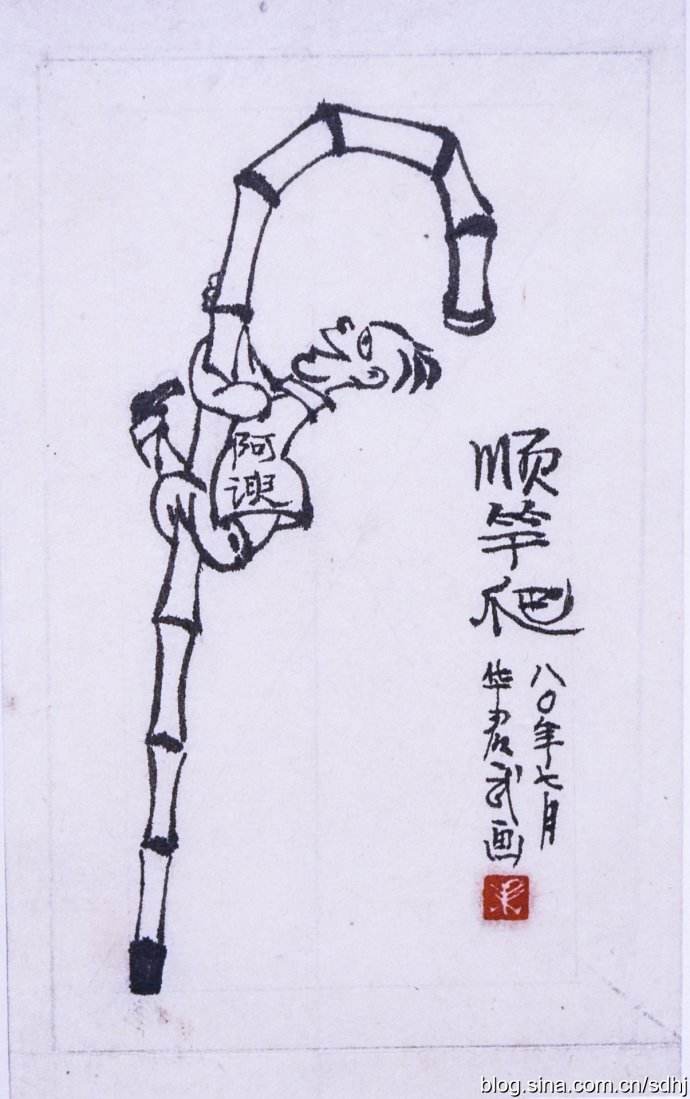 阿谀
顺竿爬
八〇年七月
华君武画
blog.sina.com.cn/sdhj